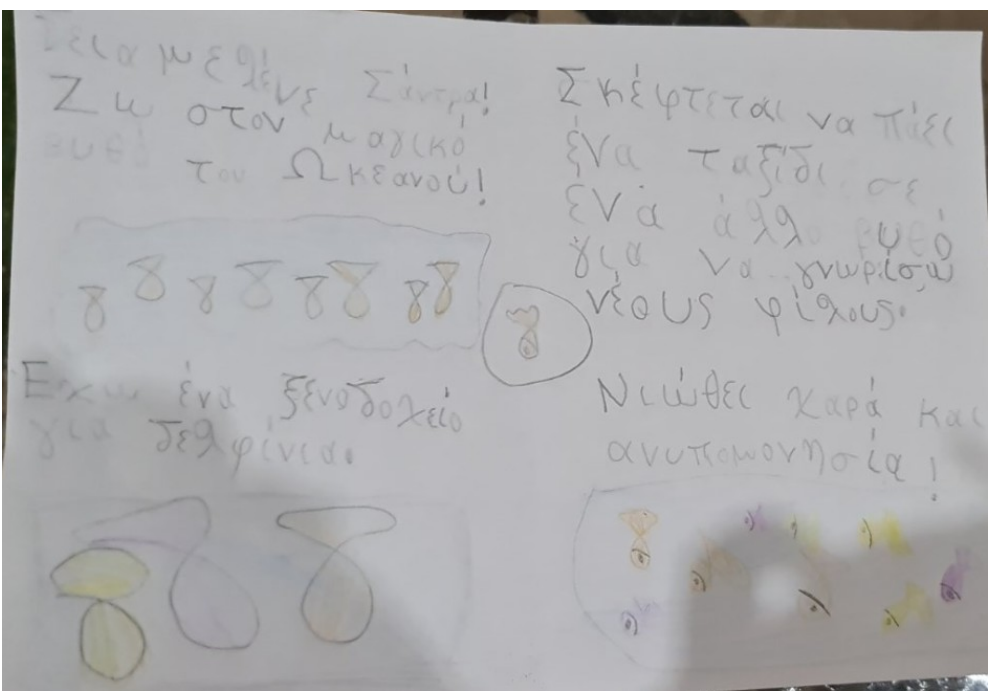 Γεια με λένε Σάντρα!
Ζω στον μαγικό
βυθό του Ωκεανού!
Έχω ένα ξενοδοχείο
για δελφίνια.
Σκέφτεται να πάει
ένα ταξίδι σε
ένα άλλο βυθό
για να γνωρίσω
νέους φίλους.
Νιώθει χαρά και
ανυπομονησία!